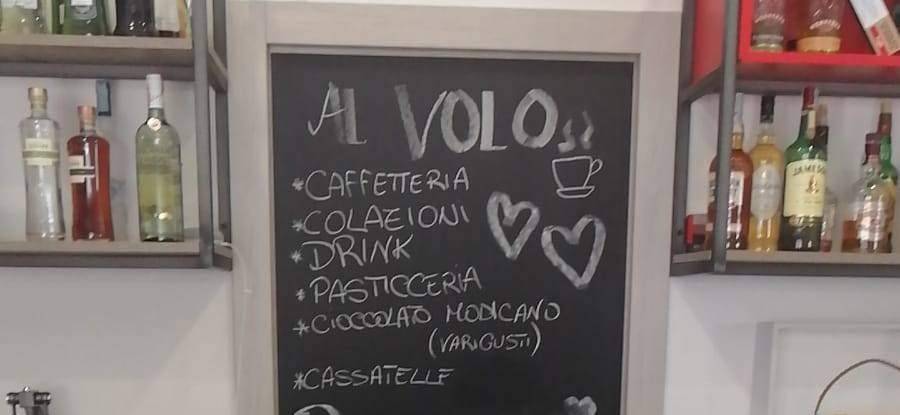 AL VOLO
*CAFFETTERIA
*COLAZIONI
*DRINK
*PASTICCERIA
*CIOCCOLATO MODICANO
(VARI GUSTI)
*CASSATELLE
JAMESON